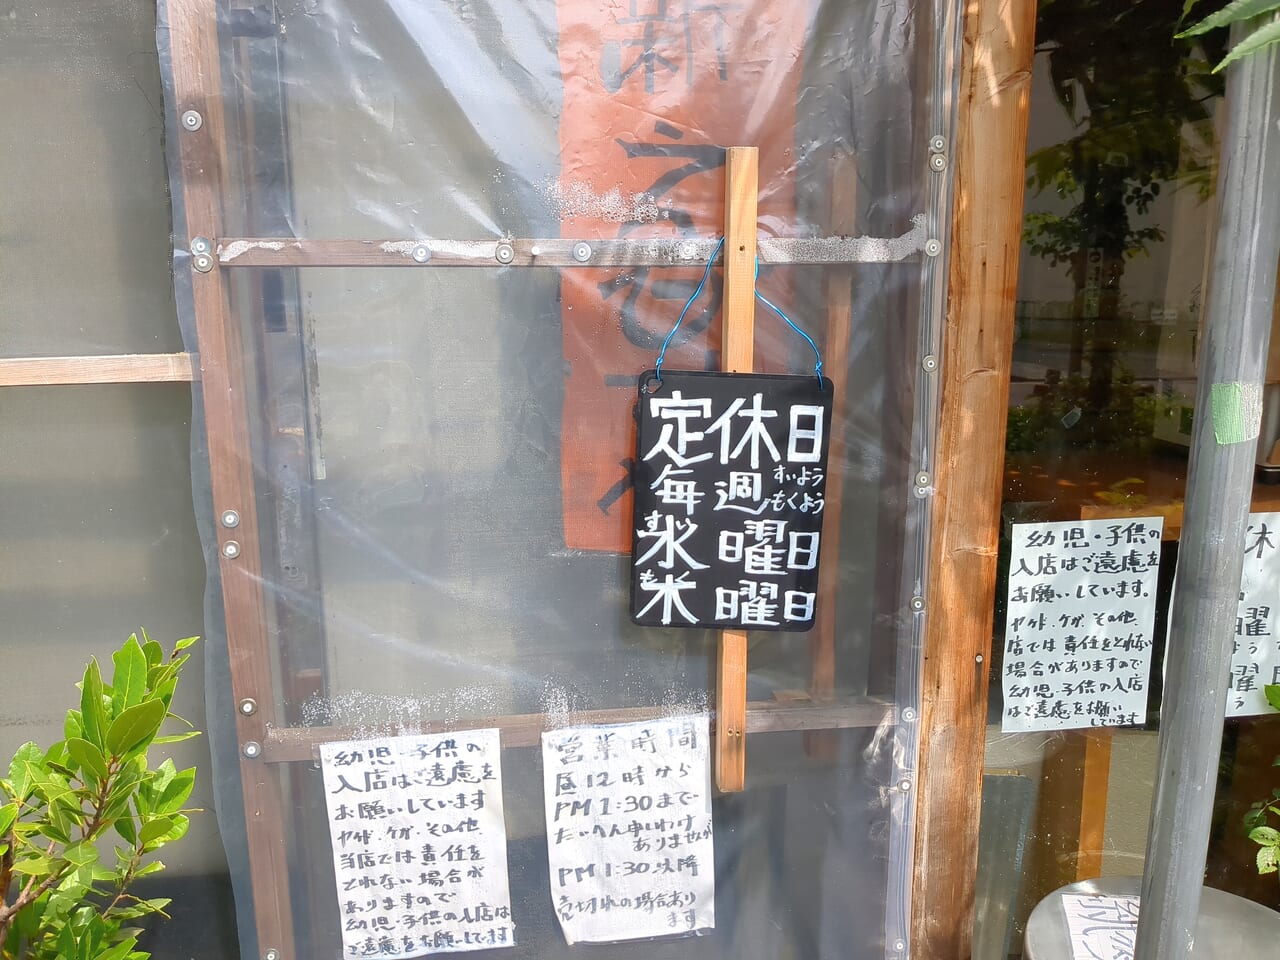 新
定休日
毎週すいよう
もくよう
すい
水曜日
もく
木曜日
幼児・子供の
入店はご遠慮を
お願いしています
ヤケド、ケガ、その他、
当店では責任を
とれない場合が
ありますので
幼児・子供の入店は
ご遠慮をお願いしています
営業時間
昼12時から
PM1:30まで
たいへん申しわけ
ありませんが
PM1:30以降
売切れの場合あり
ます
幼児・子供の
入店はご遠慮を
お願いしています。
ヤケド、ケガ、その他、
店では責任をとれない
場合がありますので
幼児・子供の入店
はご遠慮をお願い
しています
休
曜
曜日